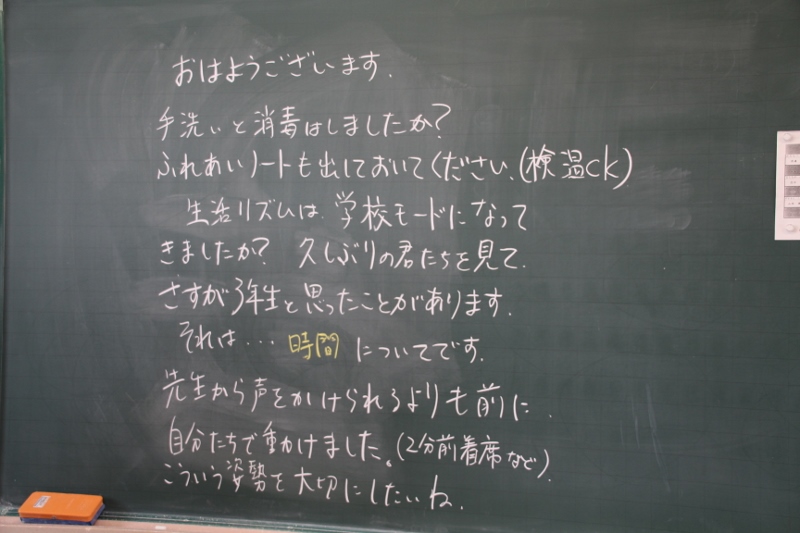 おはようございます.
手洗いと消毒はしましたか?
ふれあいノートも出しておいてください.(検温ck)
生活リズムは、学校モードになって
きましたか? 久しぶりの君たちを見て、
さすが3年生と思ったことがあります.
それは… 時間 についてです.
先生から声をかけられるよりも前に、
自分たちで動けました。(2分前着席など).
こういう姿勢を大切にしたいね.